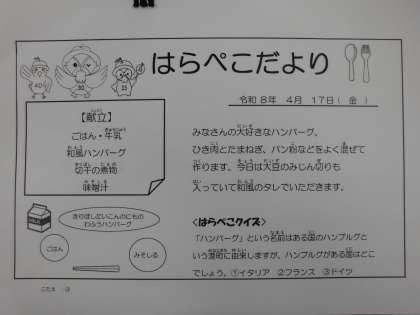 はらぺこだより
令和8年 4月 17日( 金 )
【献立】
ごはん・牛乳
和風ハンバーグ
切干の煮物
味噌汁
みなさんの大好きなハンバーグ、
ひき肉とたまねぎ、パン粉などをよく混ぜて
作ります。今日は大豆のみじん切りも
入っていて和風のタレでいただきます。
きりぼしだいこんのにもの
わふうハンバーグ
ごはん
みそしる
<はらぺこクイズ>
「ハンバーグ」という名前はある国のハンブルグと
いう港町に由来しますが、ハンブルグがある国はどこ
でしょう。①イタリア ②フランス ③ドイツ